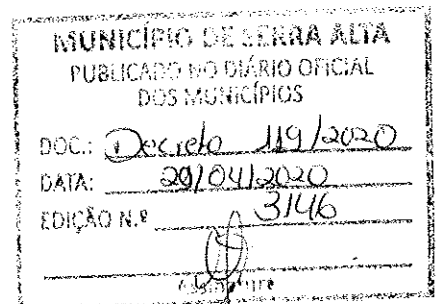 MUNICÍPIO DE SERRA ALTA
PUBLICADO NO DIÁRIO OFICIAL
DOS MUNICÍPIOS
DOC.: Decreto 119/2020
DATA: 29/04/2020
EDIÇÃO N.º 3146
Assinatura